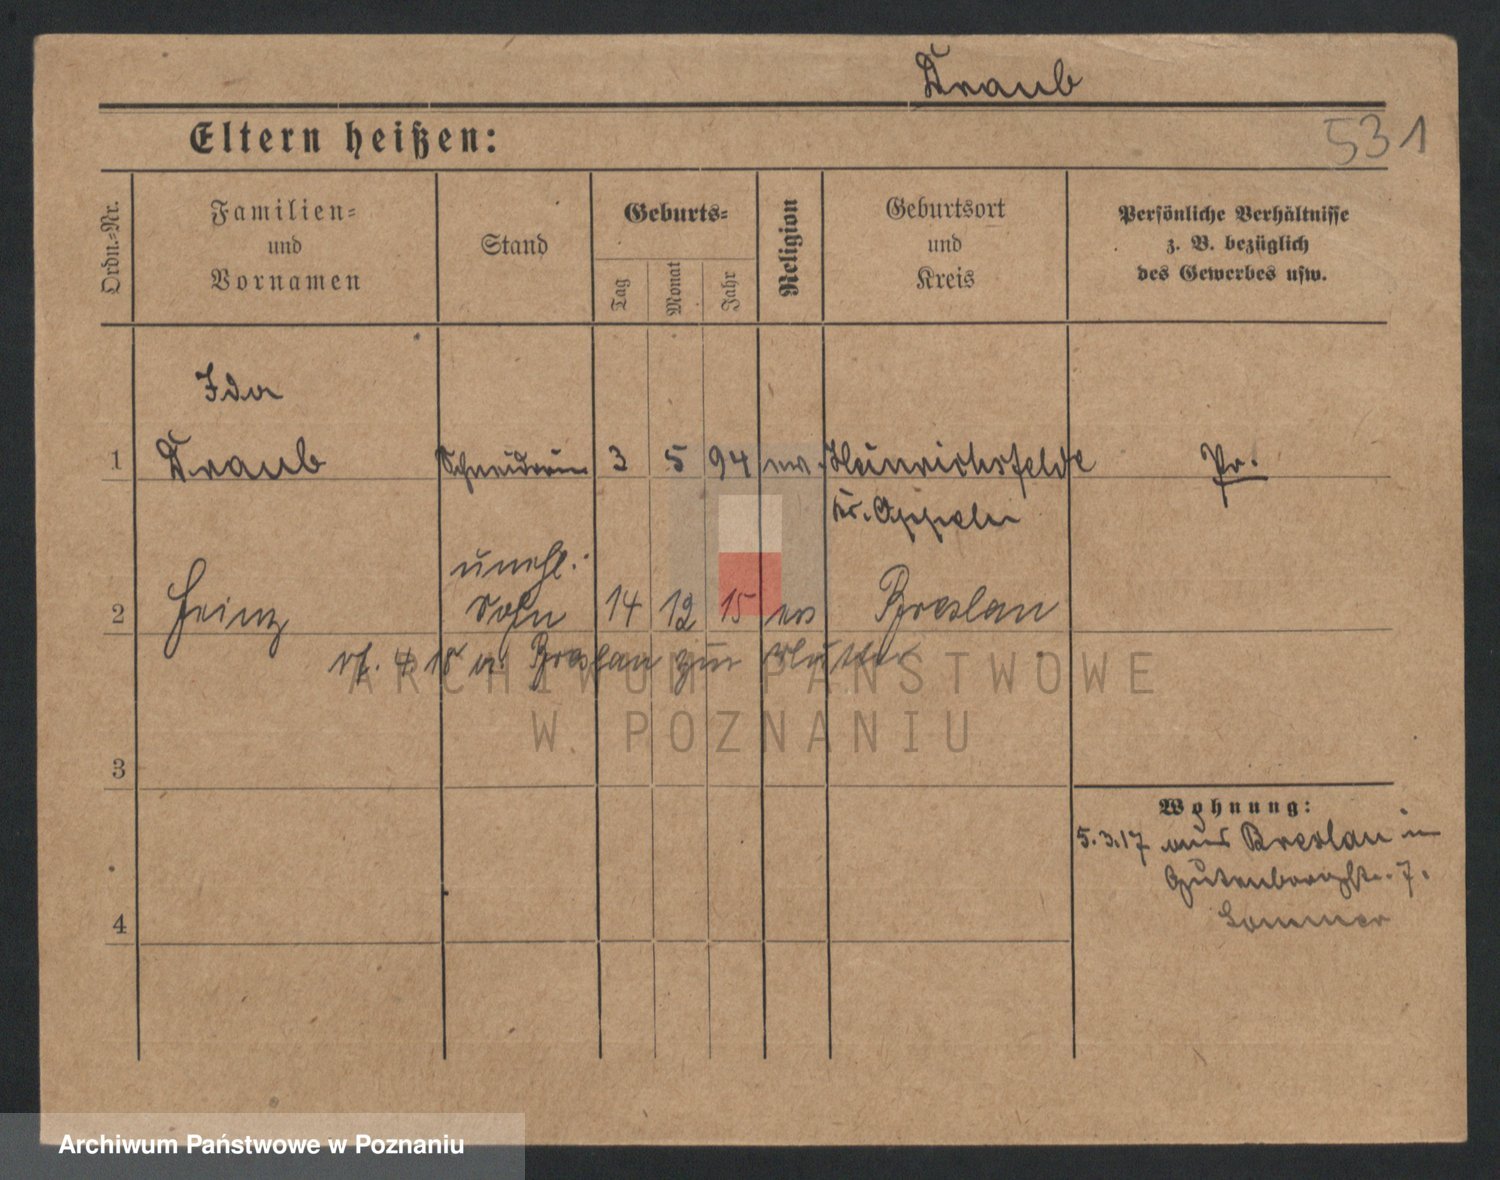 Traub
Eltern heißen:
531
Ordn.-Nr.
Familien-
und
Vornamen
Stand
Geburts-
Tag
Monat
Jahr
Religion
Geburtsort
und
Kreis
Persönliche Verhältnisse
z. B. bezüglich
des Gewerbes usw.
Ida
1 Traub Schneiderin 3 5 94 ev. Heinrichsfelde Pr.
Kr. Oppeln
unehl.
2 Heinz Sohn 14 12 15 ev Breslau
18 Breslau zur Mutter
ARCHIWUM PAŃSTWOWE
W POZNANIU
3
Wohnung:
5.3.17 aus Breslau in
Gutenbergstr. 7.
Sommer
4
Archiwum Państwowe w Poznaniu